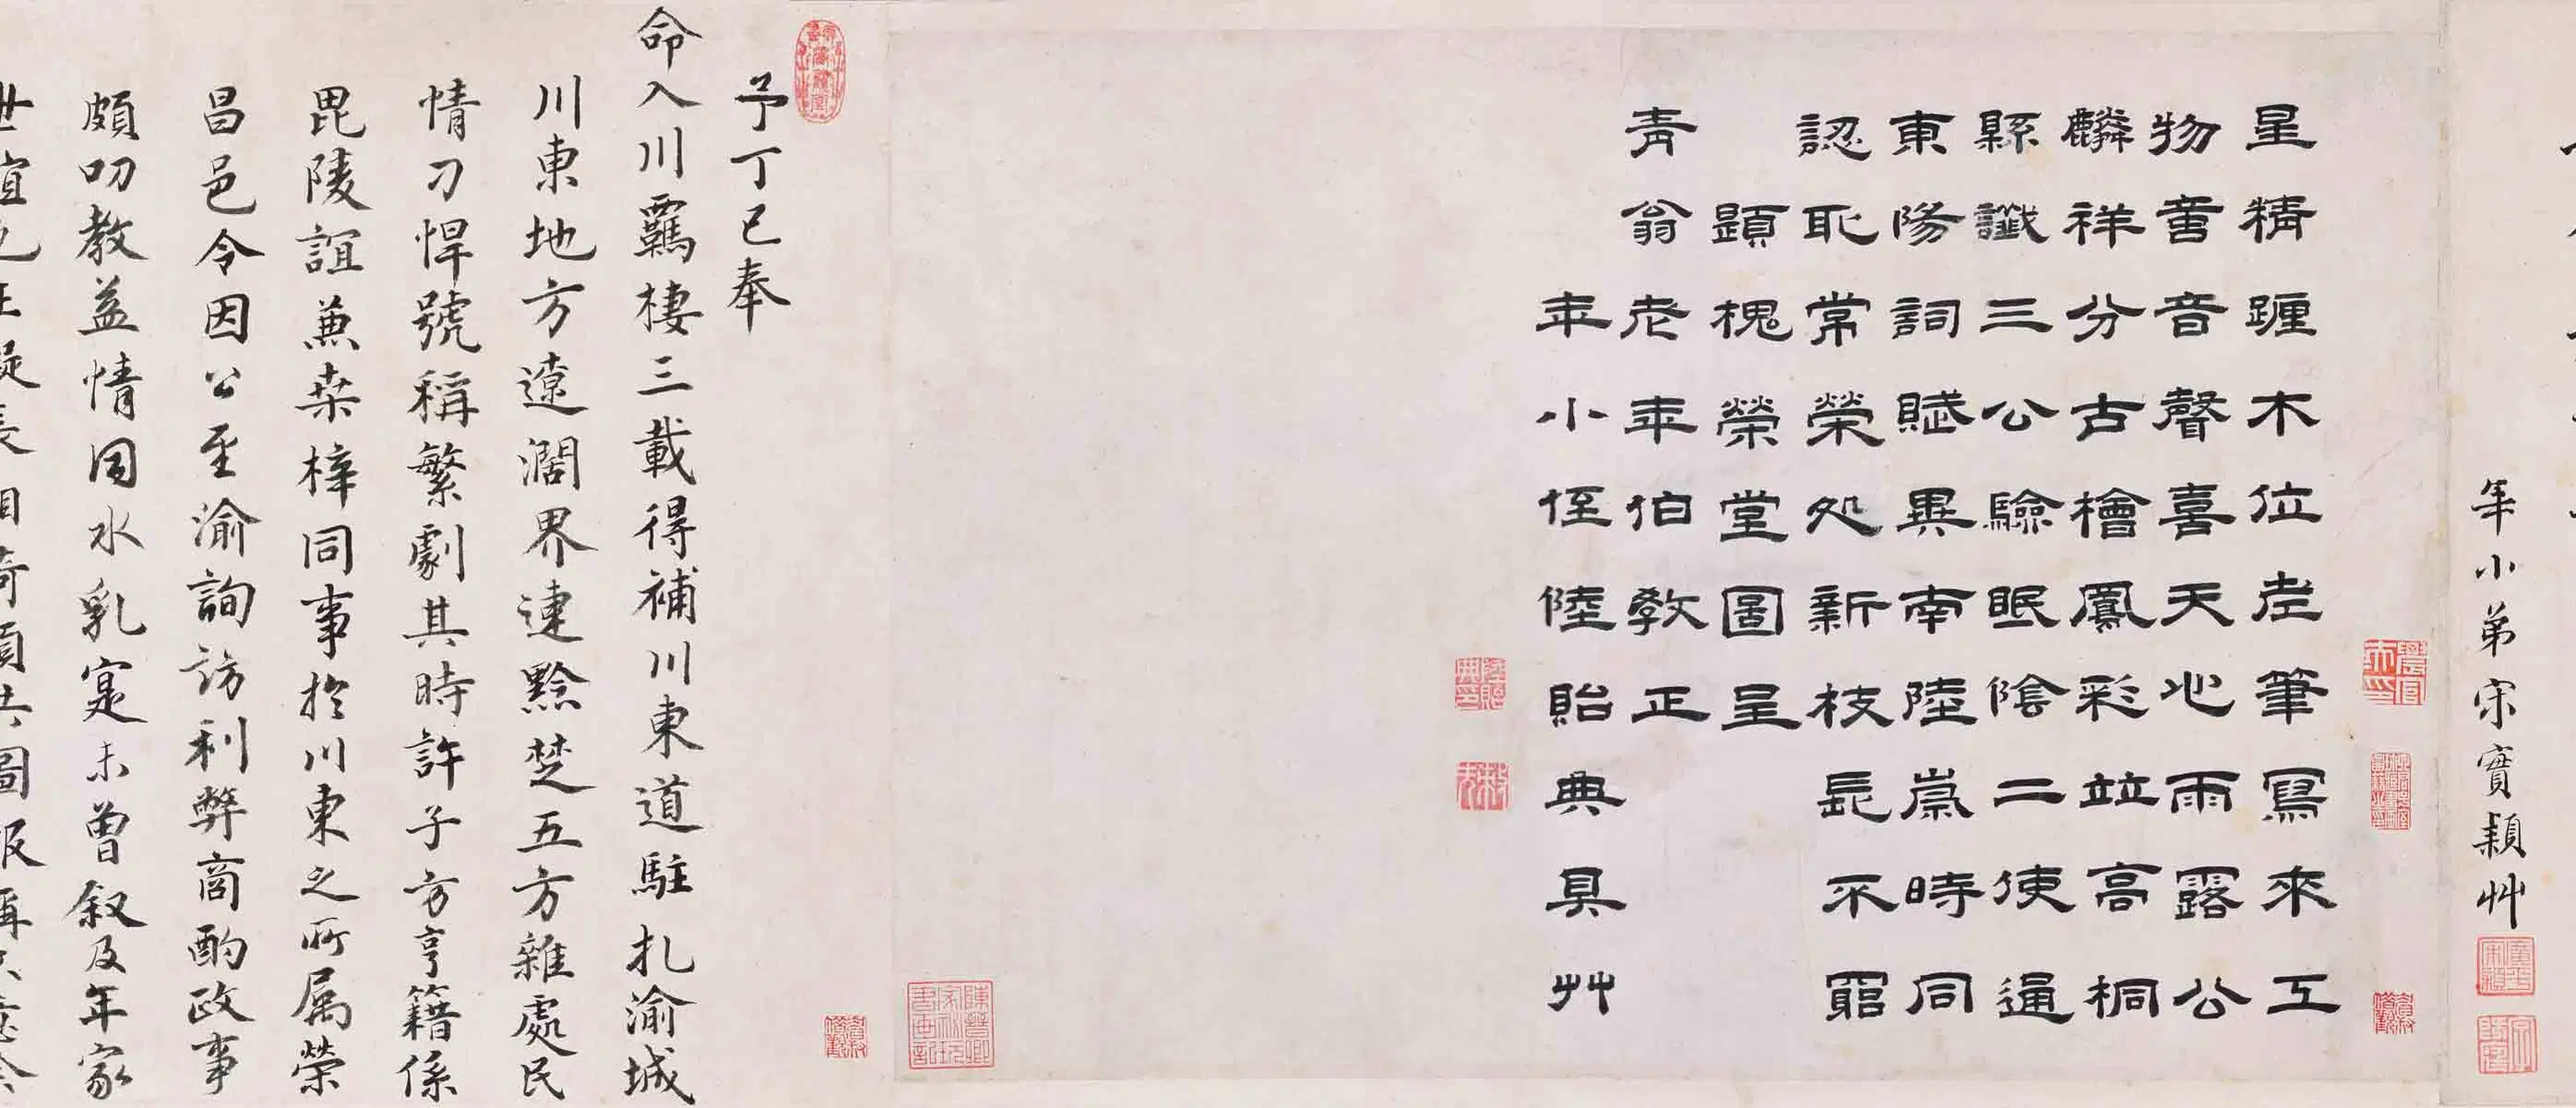 年小弟宋實穎艸
星精躔木位老筆寫來工
物書音聲喜天心雨露公
麟祥分古檜鳳彩竝高桐
縣讖三公驗眠陰二使通
東陽詞賦異南陸嵩時同
認耻常榮処新枝長不窮
題槐榮堂圖呈
青翁老年伯教正
年小侄陸貽典具艸
予丁巳奉
命入川羈棲三載得補川東道駐扎渝城
川東地方遼濶界連黔楚五方雜處民
情刁悍號稱繁劇其時許子方亨籍係
毘陵誼兼桒梓同事扵川東之所属榮
昌邑令因公至渝詢訪利弊商酌政事
頗叨教益情同水乳寔未曾叙及年家